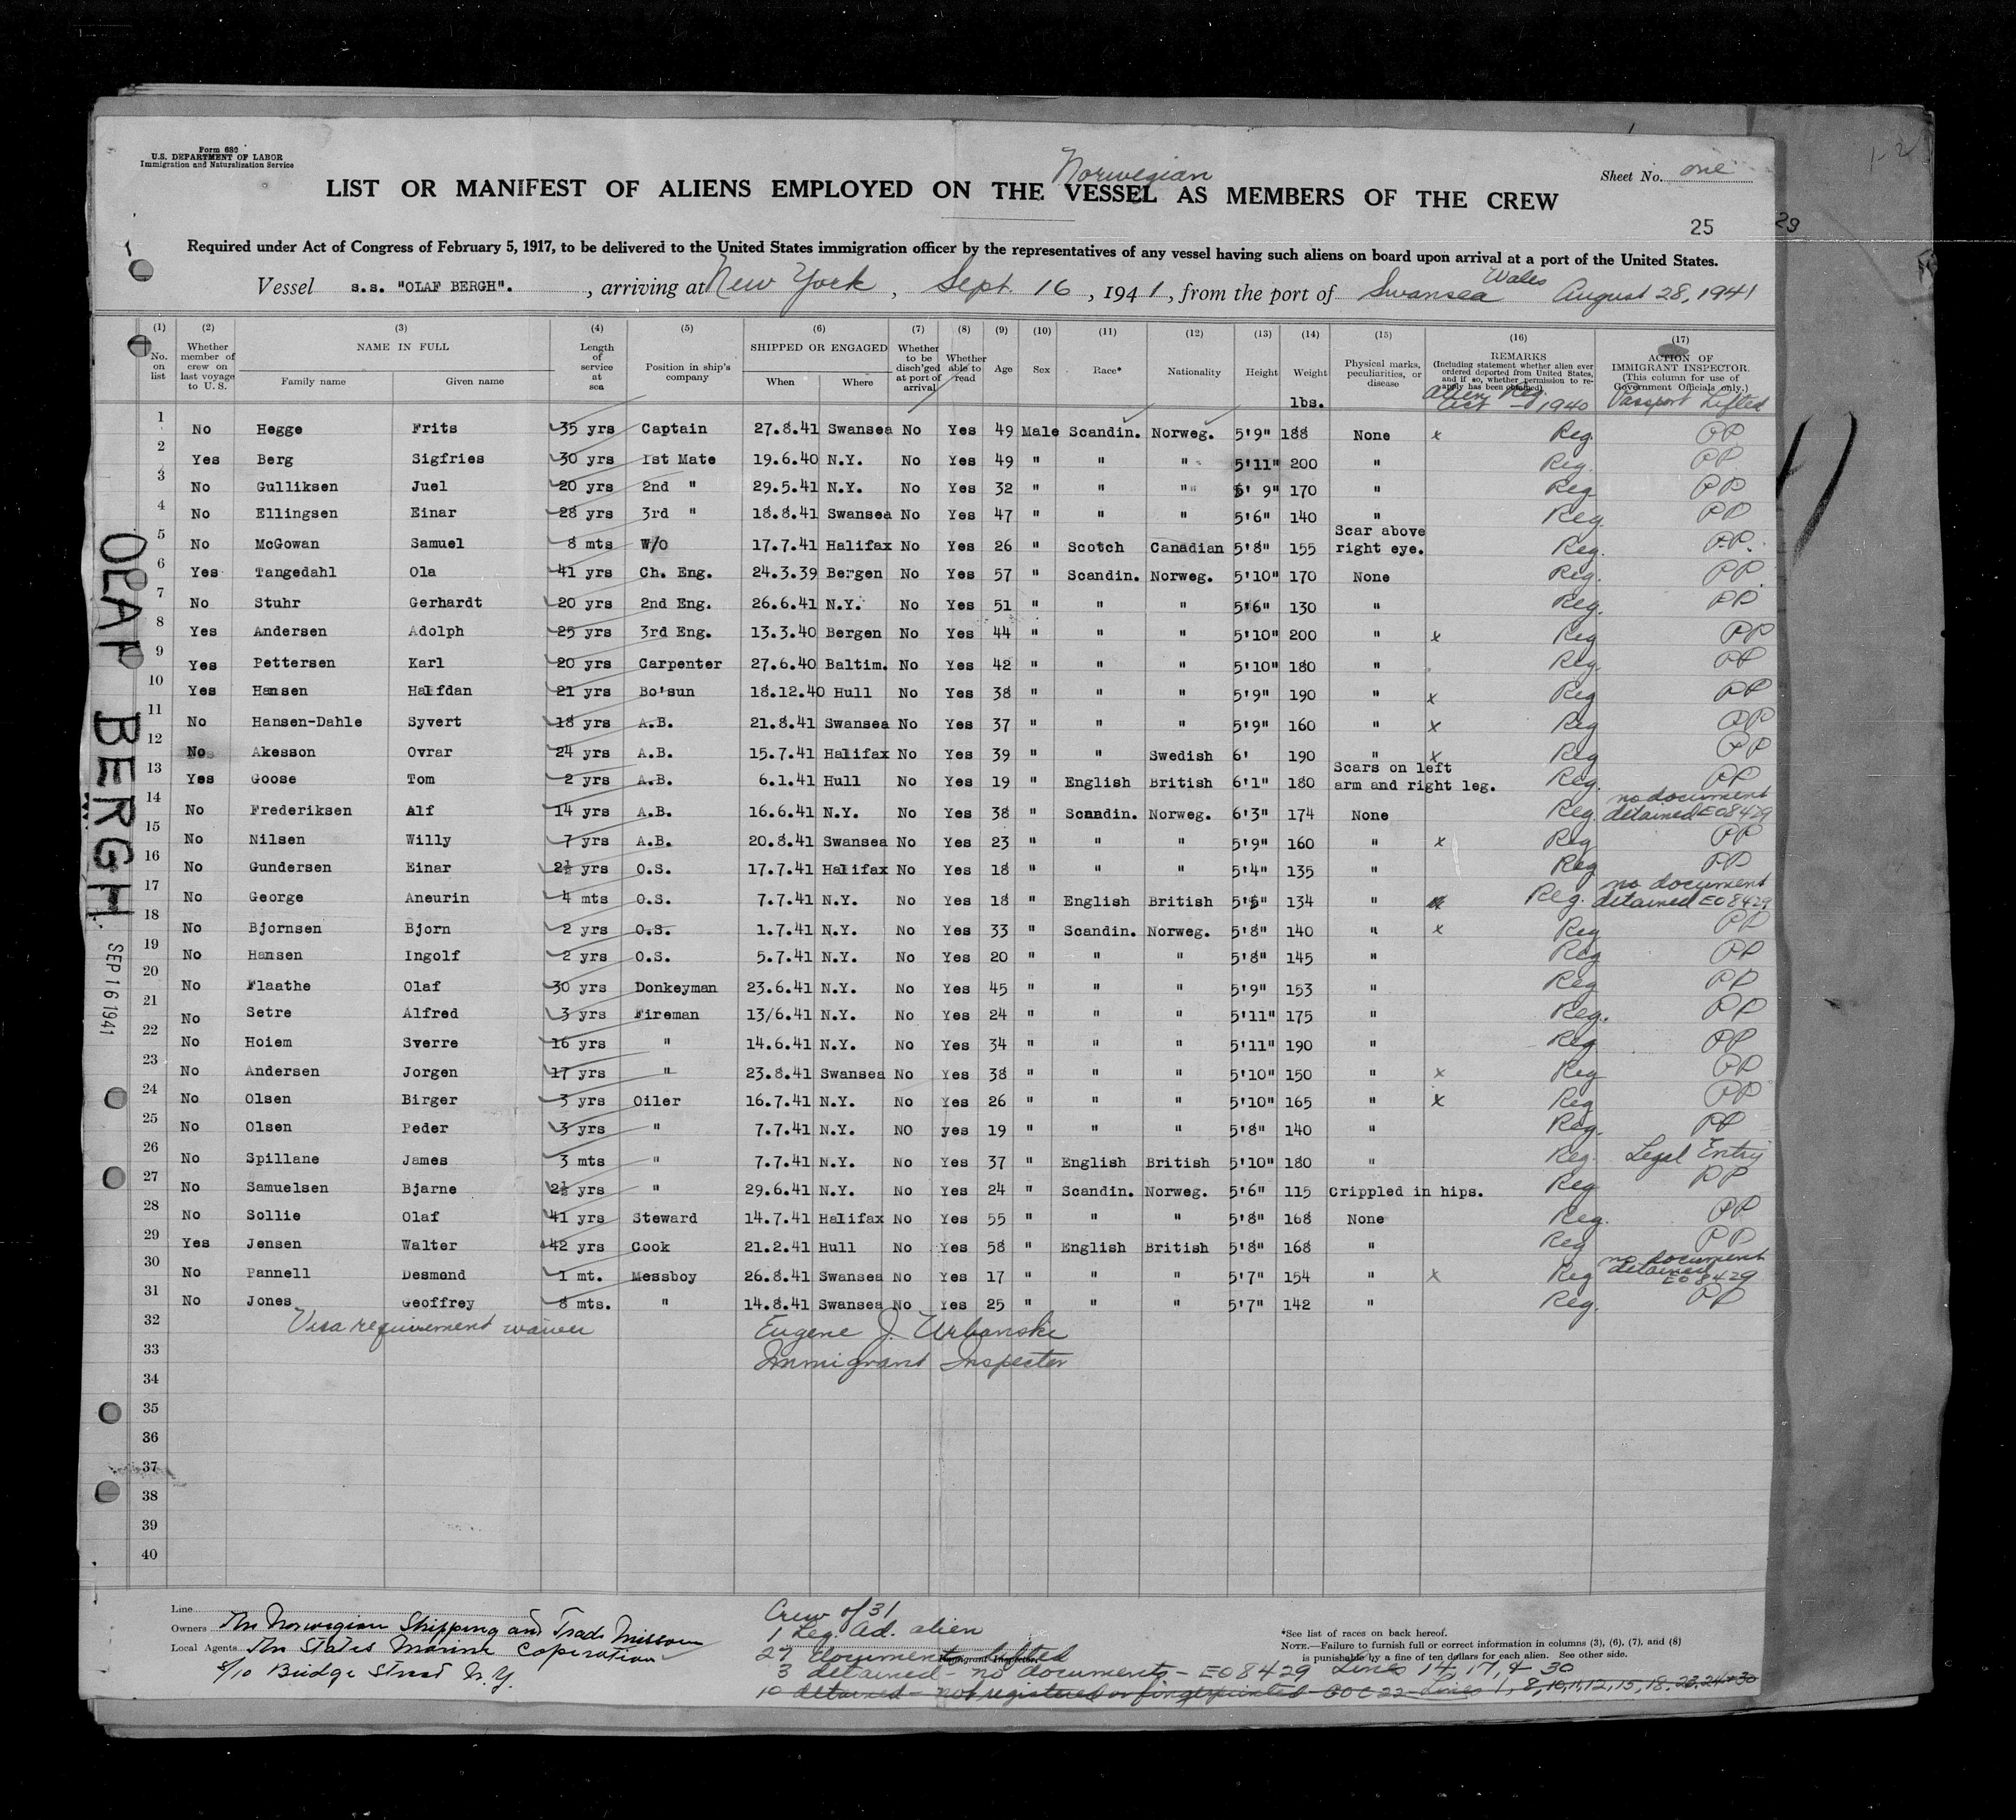 Form 680
U.S. DEPARTMENT OF LABOR
Immigration and Naturalization Service
Norwegian
Sheet No. one
1-2
LIST OR MANIFEST OF ALIENS EMPLOYED ON THE VESSEL AS MEMBERS OF THE CREW
25
29
Required under Act of Congress of February 5, 1917, to be delivered to the United States immigration officer by the representatives of any vessel having such aliens on board upon arrival at a port of the United States.
Vessel s.s. "OLAF BERGH"., arriving at New York, Sept. 16, 1941, from the port of Swansea Wales August 28, 1941
(1) (2) (3) (4) (5) (6) (7) (8) (9) (10) (11) (12) (13) (14) (15) (16) (17)
No. on list
Whether member of crew on last voyage to U. S.
NAME IN FULL
Family name Given name
Length of service at sea
Position in ship's company
SHIPPED OR ENGAGED
When Where
Whether to be disch'ged at port of arrival
Whether able to read
Age
Sex
Race*
Nationality
Height
Weight
lbs.
Physical marks, peculiarities, or disease
REMARKS
(Including statement whether alien ever ordered deported from United States, and if so, whether permission to reapply has been obtained)
Alien Reg. Act - 1940
ACTION OF IMMIGRANT INSPECTOR
(This column for use of Government Officials only.)
Passport Lifted
1 No Hegge Frits 35 yrs Captain 27.8.41 Swansea No Yes 49 Male Scandin. Norweg. 5'9" 188 None x Reg. PP
2 Yes Berg Sigfries 30 yrs 1st Mate 19.6.40 N.Y. No Yes 49 " " " 5'11" 200 " Reg. PP
3 No Gulliksen Juel 20 yrs 2nd " 29.5.41 N.Y. No Yes 32 " " " 5' 9" 170 " Reg PP
4 No Ellingsen Einar 28 yrs 3rd " 18.8.41 Swansea No Yes 47 " " " 5'6" 140 " Reg. PP
5 No McGowan Samuel 8 mts W/O 17.7.41 Halifax No Yes 26 " Scotch Canadian 5'8" 155 Scar above right eye. Reg. PP.
6 Yes Tangedahl Ola 41 yrs Ch. Eng. 24.3.39 Bergen No Yes 57 " Scandin. Norweg. 5'10" 170 None Reg. PP.
7 No Stuhr Gerhardt 20 yrs 2nd Eng. 26.6.41 N.Y. No Yes 51 " " " 5'6" 130 " Reg. PP
8 Yes Andersen Adolph 25 yrs 3rd Eng. 13.3.40 Bergen No Yes 44 " " " 5'10" 200 " x Reg PP
9 Yes Pettersen Karl 20 yrs Carpenter 27.6.40 Baltim. No Yes 42 " " " 5'10" 180 " Reg. PP
10 Yes Hansen Halfdan 21 yrs Bo'sun 18.12.40 Hull No Yes 38 " " " 5'9" 190 " x Reg PP
11 No Hansen-Dahle Syvert 18 yrs A.B. 21.8.41 Swansea No Yes 37 " " " 5'9" 160 " x Reg PP
12 No Akesson Ovrar 24 yrs A.B. 15.7.41 Halifax No Yes 39 " " Swedish 6' 190 " x Reg PP
13 Yes Goose Tom 2 yrs A.B. 6.1.41 Hull No Yes 19 " English British 6'1" 180 Scars on left arm and right leg. Reg. PP
14 No Frederiksen Alf 14 yrs A.B. 16.6.41 N.Y. No Yes 38 " Scandin. Norweg. 6'3" 174 None Reg. no document detained EO8429
15 No Nilsen Willy 7 yrs A.B. 20.8.41 Swansea No Yes 23 " " " 5'9" 160 " x Reg PP
16 No Gundersen Einar 2½ yrs O.S. 17.7.41 Halifax No Yes 18 " " " 5'4" 135 " Reg PP
17 No George Aneurin 4 mts O.S. 7.7.41 N.Y. No Yes 18 " English British 5'6" 134 " Reg. no document detained EO8429
18 No Bjornsen Bjorn 2 yrs O.S. 1.7.41 N.Y. No Yes 33 " Scandin. Norweg. 5'8" 140 " x Reg PP
19 No Hansen Ingolf 2 yrs O.S. 5.7.41 N.Y. No Yes 20 " " " 5'8" 145 " Reg PP
20 No Flaathe Olaf 30 yrs Donkeyman 23.6.41 N.Y. No Yes 45 " " " 5'9" 153 " Reg PP
21 No Setre Alfred 3 yrs Fireman 13/6.41 N.Y. No Yes 24 " " " 5'11" 175 " Reg. PP
22 No Hoiem Sverre 16 yrs " 14.6.41 N.Y. No Yes 34 " " " 5'11" 190 " Reg PP
23 No Andersen Jorgen 17 yrs " 23.8.41 Swansea No Yes 38 " " " 5'10" 150 " x Reg PP
24 No Olsen Birger 3 yrs Oiler 16.7.41 N.Y. No Yes 26 " " " 5'10" 165 " x Reg PP
25 No Olsen Peder 3 yrs " 7.7.41 N.Y. NO yes 19 " " " 5'8" 140 " Reg. PP
26 No Spillane James 3 mts " 7.7.41 N.Y. No Yes 37 " English British 5'10" 180 " Reg. Legal Entry
27 No Samuelsen Bjarne 2½ yrs " 29.6.41 N.Y. No Yes 24 " Scandin. Norweg. 5'6" 115 Crippled in hips. Reg PP
28 No Sollie Olaf 41 yrs Steward 14.7.41 Halifax No Yes 55 " " " 5'8" 168 None Reg. PP
29 Yes Jensen Walter 42 yrs Cook 21.2.41 Hull No Yes 58 " English British 5'8" 168 " Reg PP
30 No Pannell Desmond 1 mt. Messboy 26.8.41 Swansea No Yes 17 " " " 5'7" 154 " x Reg no document detained EO 8429
31 No Jones Geoffrey 8 mts. " 14.8.41 Swansea No Yes 25 " " " 5'7" 142 " Reg. PP
32 Visa requirement waiver Eugene J. Urbanski
33 Immigrant Inspector
34
35
36
37
38
39
40
OLAF BERGH.
SEP 16 1941
Line
Owners The Norwegian Shipping and Trade Mission
Local Agents The States Marine Coperation
8/10 Bridge Street N.Y.
Crew of 31
1 Leg. Ad. alien
27 documents lifted
Immigrant Inspector.
3 detained - no documents - EO 8429 Lines 14, 17, & 30
10 detained - not registered or fingerprinted - GOC 22 - Lines 1, 8, 10, 11, 12, 15, 18, 23, 24 + 30
*See list of races on back hereof.
NOTE.—Failure to furnish full or correct information in columns (3), (6), (7), and (8) is punishable by a fine of ten dollars for each alien. See other side.